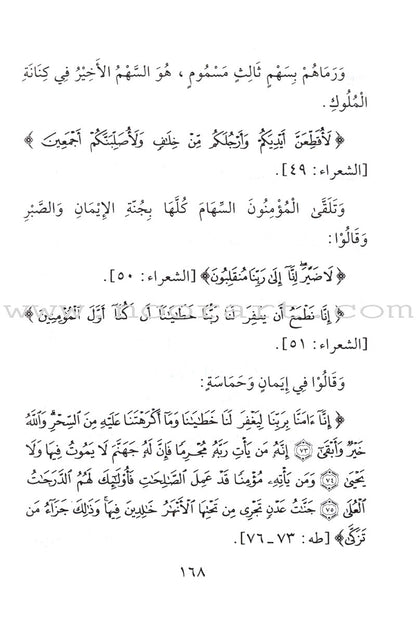 وَرَمَاهُمْ بِسَهْمٍ ثَالِثٍ مَسْمُومٍ ، هُوَ السَّهْمُ الأَخِيْرُ فِي كِنَانَةِ
الْمُلُوكِ.
﴿ لَأُقَطِّعَنَّ أَيْدِيَكُمْ وَأَرْجُلَكُم مِّنْ خِلَٰفٍ وَلَأُصَلِّبَنَّكُمْ أَجْمَعِينَ ﴾
[الشعراء: ٤٩].
وَتَلَقَّىٰ الْمُؤْمِنُونَ السِّهَامَ كُلَّهَا بِجُنَّةِ الإِيْمَانِ وَالصَّبْرِ
وَقَالُوْا:
﴿لَا ضَيْرَ ۖ إِنَّآ إِلَىٰ رَبِّنَا مُنقَلِبُونَ﴾ [الشعراء: ٥٠].
﴿ إِنَّا نَطْمَعُ أَن يَغْفِرَ لَنَا رَبُّنَا خَطَٰيَٰنَآ أَن كُنَّآ أَوَّلَ الْمُؤْمِنِينَ ﴾
[الشعراء: ٥١].
وَقَالُوْا فِي إِيْمَانٍ وَحَمَاسَةٍ:
﴿ إِنَّآ ءَامَنَّا بِرَبِّنَا لِيَغْفِرَ لَنَا خَطَٰيَٰنَا وَمَآ أَكْرَهْتَنَا عَلَيْهِ مِنَ السِّحْرِ ۗ وَاللَّهُ
خَيْرٌ وَأَبْقَىٰٓ ﴿٧٣﴾ إِنَّهُ مَن يَأْتِ رَبَّهُ مُجْرِمًا فَإِنَّ لَهُ جَهَنَّمَ لَا يَمُوتُ فِيهَا وَلَا
يَحْيَىٰ ﴿٧٤﴾ وَمَن يَأْتِهِ مُؤْمِنًا قَدْ عَمِلَ الصَّٰلِحَٰتِ فَأُو۟لَٰٓئِكَ لَهُمُ الدَّرَجَٰتُ
الْعُلَىٰ ﴿٧٥﴾ جَنَّٰتُ عَدْنٍ تَجْرِي مِن تَحْتِهَا الْأَنْهَٰرُ خَٰلِدِينَ فِيهَا ۚ وَذَٰلِكَ جَزَآءُ مَن
تَزَكَّىٰ﴾ [طه: ٧٣ ـ ٧٦].
١٦٨